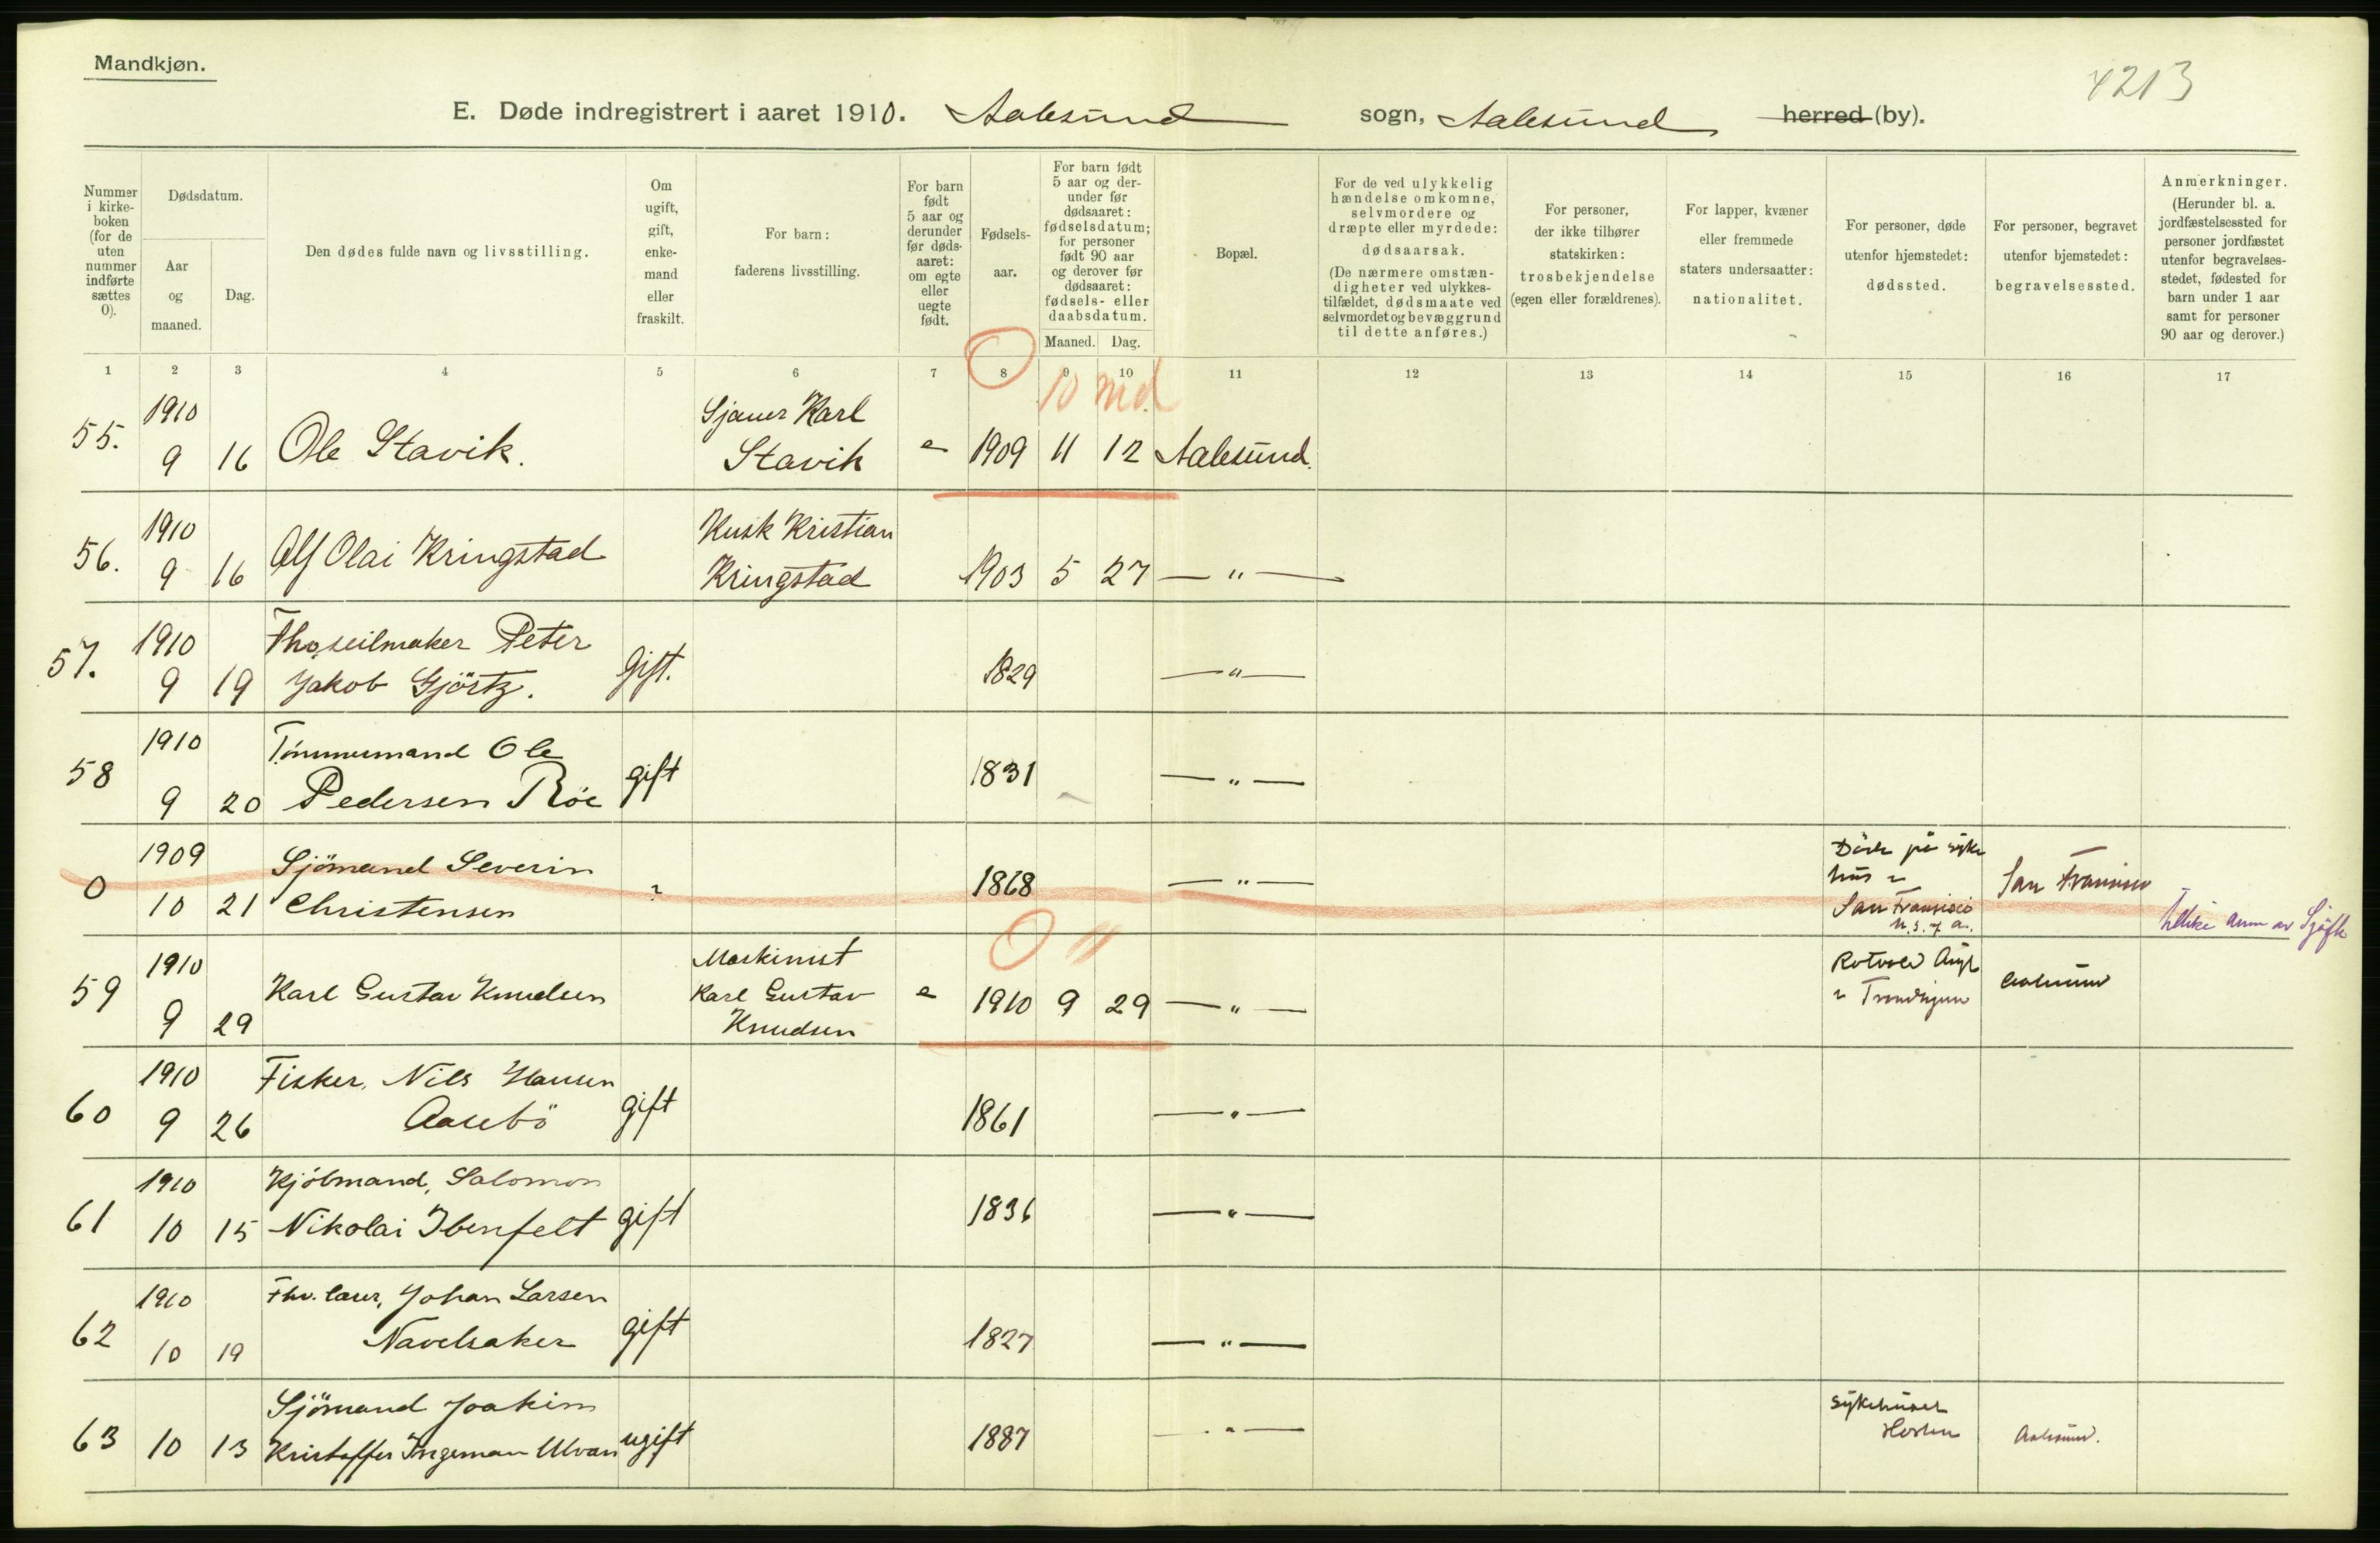 Mandkjøn.
4213
E. Døde indregistrert i aaret 1910. Aalesund sogn, Aalesund herred (by).
Nummer i kirke-boken (for de uten nummer indførte sættes 0).
Dødsdatum.
Aar og maaned.
Dag.
Den dødes fulde navn og livsstilling.
Om ugift, gift, enke-mand eller fraskilt.
For barn: faderens livsstilling.
For barn født 5 aar og derunder før døds-aaret: om egte eller uegte født.
Fødsels-aar.
For barn født 5 aar og der-under før dødsaaret: fødselsdatum; for personer født 90 aar og derover før dødsaaret: fødsels- eller daabsdatum.
Maaned. Dag.
Bopæl.
For de ved ulykkelig hændelse omkomne, selvmordere og dræpte eller myrdede: dødsaarsak. (De nærmere omstæn-digheter ved ulykkes-tilfældet, dødsmaate ved selvmordet og bevæggrund til dette anføres.)
For personer, der ikke tilhører statskirken: trosbekjendelse (egen eller forældrenes).
For lapper, kvæner eller fremmede staters undersaatter: nationalitet.
For personer, døde utenfor hjemstedet: dødssted.
For personer, begravet utenfor bjemstedet: begravelsessted.
Anmerkninger. (Herunder bl. a. jordfæstelsessted for personer jordfæstet utenfor begravelses-stedet, fødested for barn under 1 aar samt for personer 90 aar og derover.)
1 2 3 4 5 6 7 8 9 10 11 12 13 14 15 16 17
10 md.
55. 1910 9 16 Ole Stavik. Sjauer Karl Stavik e 1909 11 12 Aalesund.
56. 1910 9 16 Alf Olai Kringstad Kusk Kristian Kringstad 1903 5 27 — " —
57. 1910 9 19 Fhv. seilmaker Peter Jakob Gjörtz. gift. 1829 — " —
58 1910 9 20 Tömmermand Ole Pedersen Röe gift 1831 — " —
0 1909 10 21 Sjömand Severin Christensen ? 1868 — " — Döde på syke hus i San Fransisco U.S. of A. San Fransisco
59 1910 9 29 Karl Gustav Knudsen Maskinist Karl Gustav Knudsen e 1910 9 29 — " — Rotvold Asyl i Trondhjem Aalesund
60 1910 9 26 Fisker, Nils Hansen Aasebö gift 1861 — " —
61 1910 10 15 Kjöbmand, Salomon Nikolai Ibenfelt gift 1836 — " —
62 1910 10 19 Fhv. Johan Larsen Navelsaker gift 1827 — " —
63 10 13 Sjömand Joakim Kristoffer Ingeman Ulvan ugift 1887 — " — Sykehuset Aalesund.